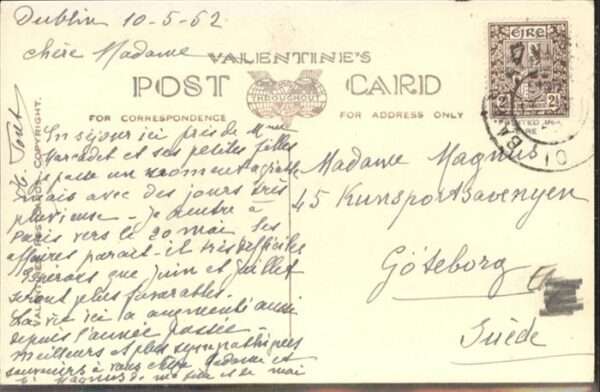 Dublin 10-5-52
chère Madame
VALENTINE'S
POST CARD
THROUGHOUT
FOR CORRESPONDENCE
FOR ADDRESS ONLY
ÉIRE
En séjour ici près de Mme
et ses petites filles
je passe un moment agréable
mais avec des jours très
pluvieuse - je rentre à
Paris vers le 20 mai les
affaires parait-il très difficiles
Esperons que juin et juillet
seront plus favorables.
La vie ici a augmenté aussi
depuis l'année passée -
Meilleurs et plus sympathiques
souvenirs à vous chère Madame et
Magnus de ma et de moi
Madame Magnus
45 Kunsportsavenyen
Göteborg
Suède
COPYRIGHT.